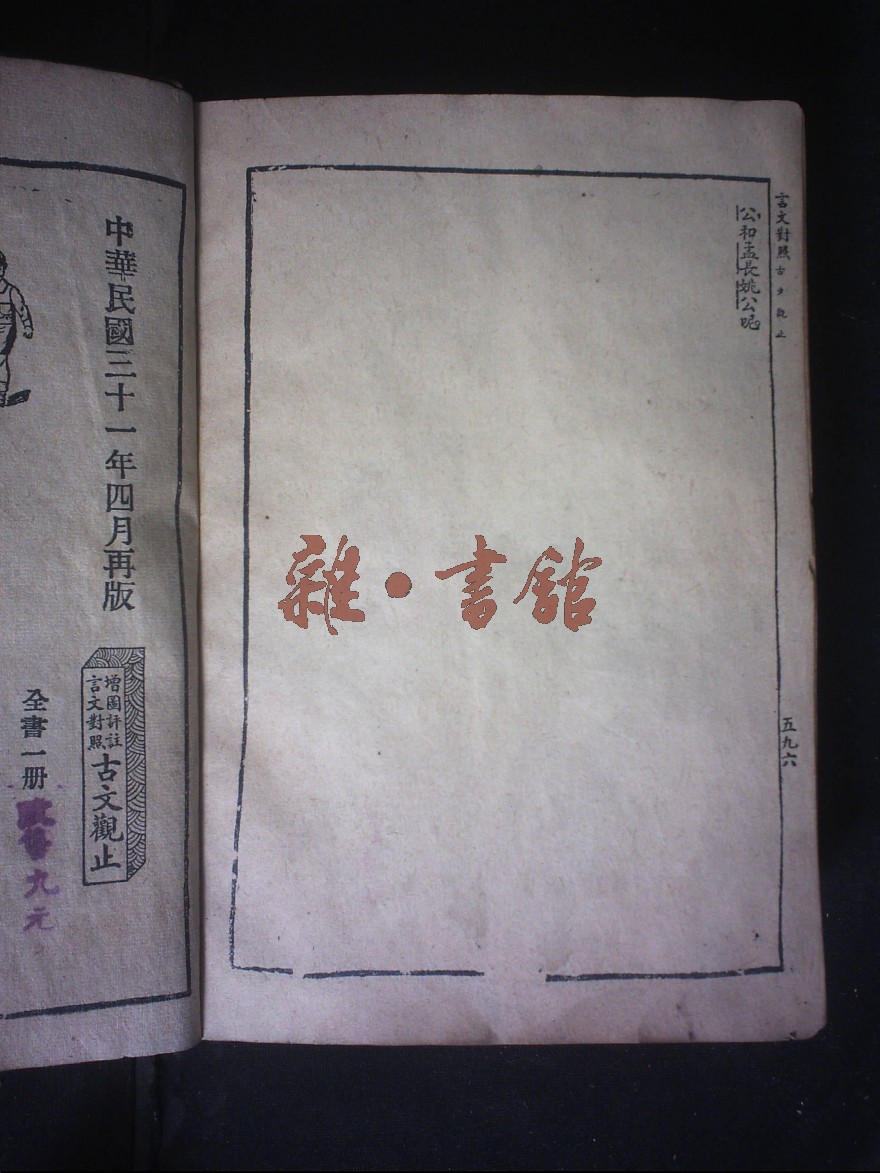 言文對照古文觀止
公和孟長姚公呢
五九六
雜·書館
中華民國三十一年四月再版
增圖評註
言文對照
古文觀止
全書一册
九元